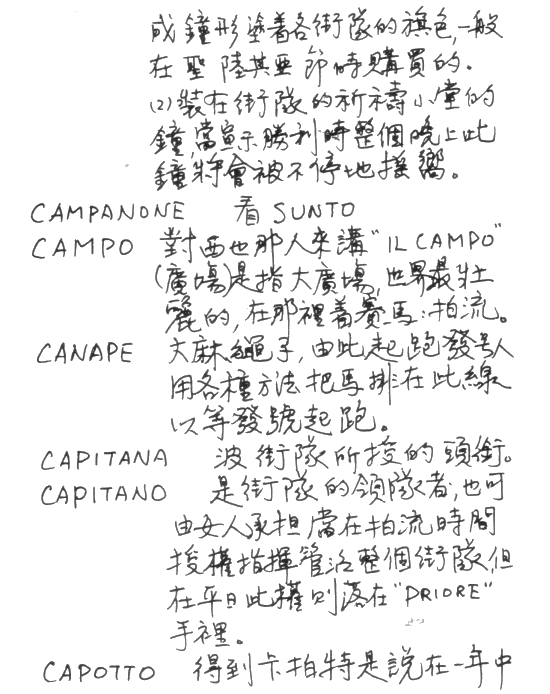 或鐘形塗着各街隊的旗色,一般
在聖陸其亞節時購買的.
(2)裝在街隊的祈禱小堂的
鐘,當宣示勝利時整個晚上此
鐘將會被不停地接嚮。
CAMPANONE 看 SUNTO
CAMPO 對西也那人來講"IL CAMPO"
(廣場)是指大廣場,世界最壯
麗的,在那裡着賽馬:拍流。
CANAPE 大麻繩子,由此起跑發號人
用各種方法把馬排在此線
以等發號起跑。
CAPITANA 波街隊所授的頭銜。
CAPITANO 是街隊的領隊者,也可
由女人承担當在拍流時間
授權指揮管治整個街隊但
在平日此權則落在"PRIORE"
手裡。
CAPOTTO 得到卡拍特是說在一年中